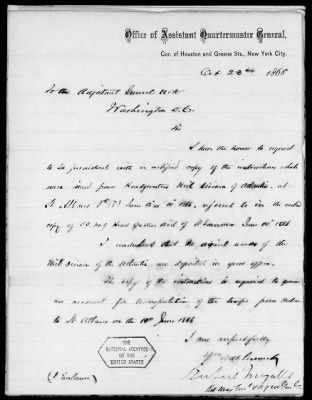 Office of Assistant Quartermaster General,
Cor. of Houston and Greene Sts., New York City.
Oct 23rd 1868
To the Adjutant General U.S.A
Washington D.C.
Sir
I have the honor to request
to be furnished with a certified copy of the instructions which
were issued from Headquarters Mil Division of Atlantic, at
St Albans Vt. June 1866, referred to in the
copy of June 1866
I understand that the original records of the
Mil Division of the Atlantic are deposited in your office.
The copy of the instructions is required to
account for transportation of the troops from
to St Albans on the June 1866
I am respectfully
Your Obt Servant
Rufus Ingalls
THE
NATIONAL ARCHIVES
OF THE
UNITED STATES